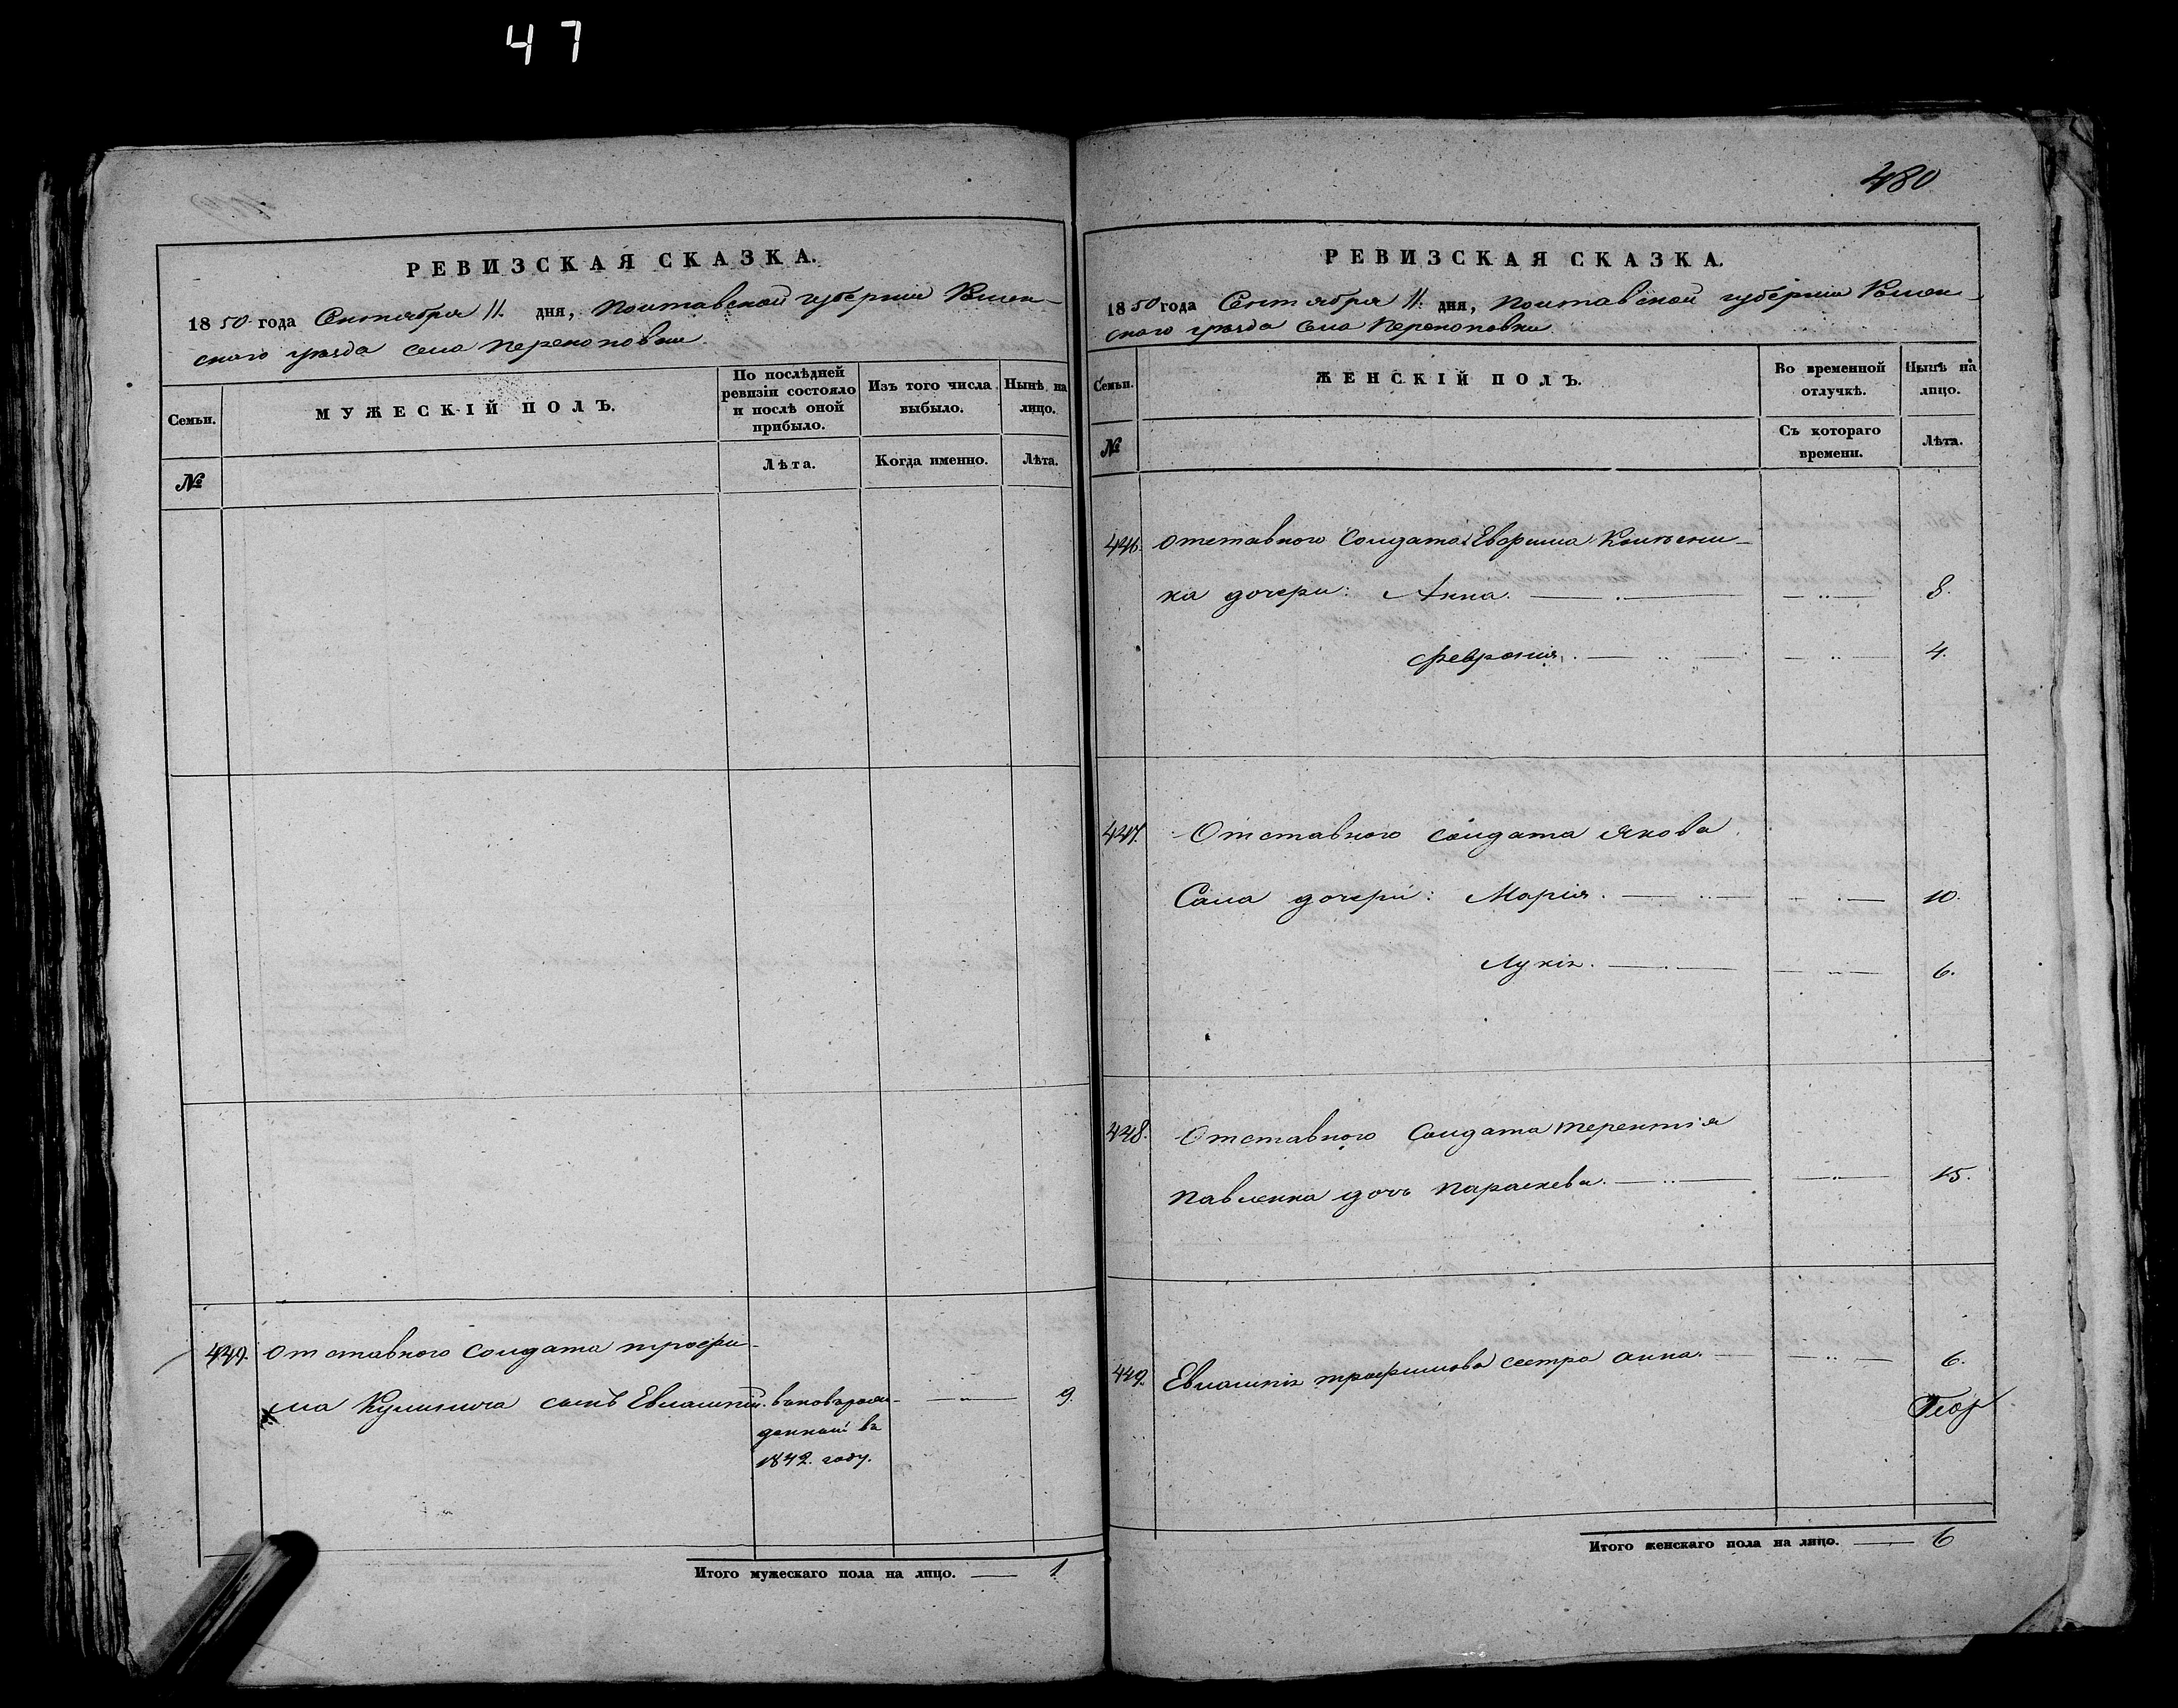 47
РЕВИЗСКАЯ СКАЗКА.
1850 года Сентября 11. дня, Полтавской губерніи Ромен-
скаго уѣзда села Перекоповки.
Семьи.
МУЖЕСКІЙ ПОЛЪ.
По послѣдней ревизіи состояло и послѣ оной прибыло.
Изъ того числа выбыло.
Нынѣ на лицо.
№
Лѣта.
Когда именно.
Лѣта.
449. Отставного Солдата Трофи-
ма Кулинича сынъ Евлампій. вновьрож- 9.
денный въ
1842. году.
Итого мужескаго пола на лицо. 1
480
РЕВИЗСКАЯ СКАЗКА.
1850 года Сентября 11. дня, Полтавской губерніи Ромен-
скаго уѣзда села Перекоповки
Семьи.
ЖЕНСКІЙ ПОЛЪ.
Во временной отлучкѣ.
Нынѣ на лицо.
№
Съ котораго времени.
Лѣта.
446. Отставного Солдата Евфима
ка дочери: Анна. 8.
Феврония. 4.
447. Отставного солдата Якова
дочери: Марія. 10.
Лукія. 6.
448. Отставного Солдата Терентія
Павленка дочь Параскева. 15.
449. Евлампія Трофимова сестра Анна. 6.
Итого женскаго пола на лицо. 6